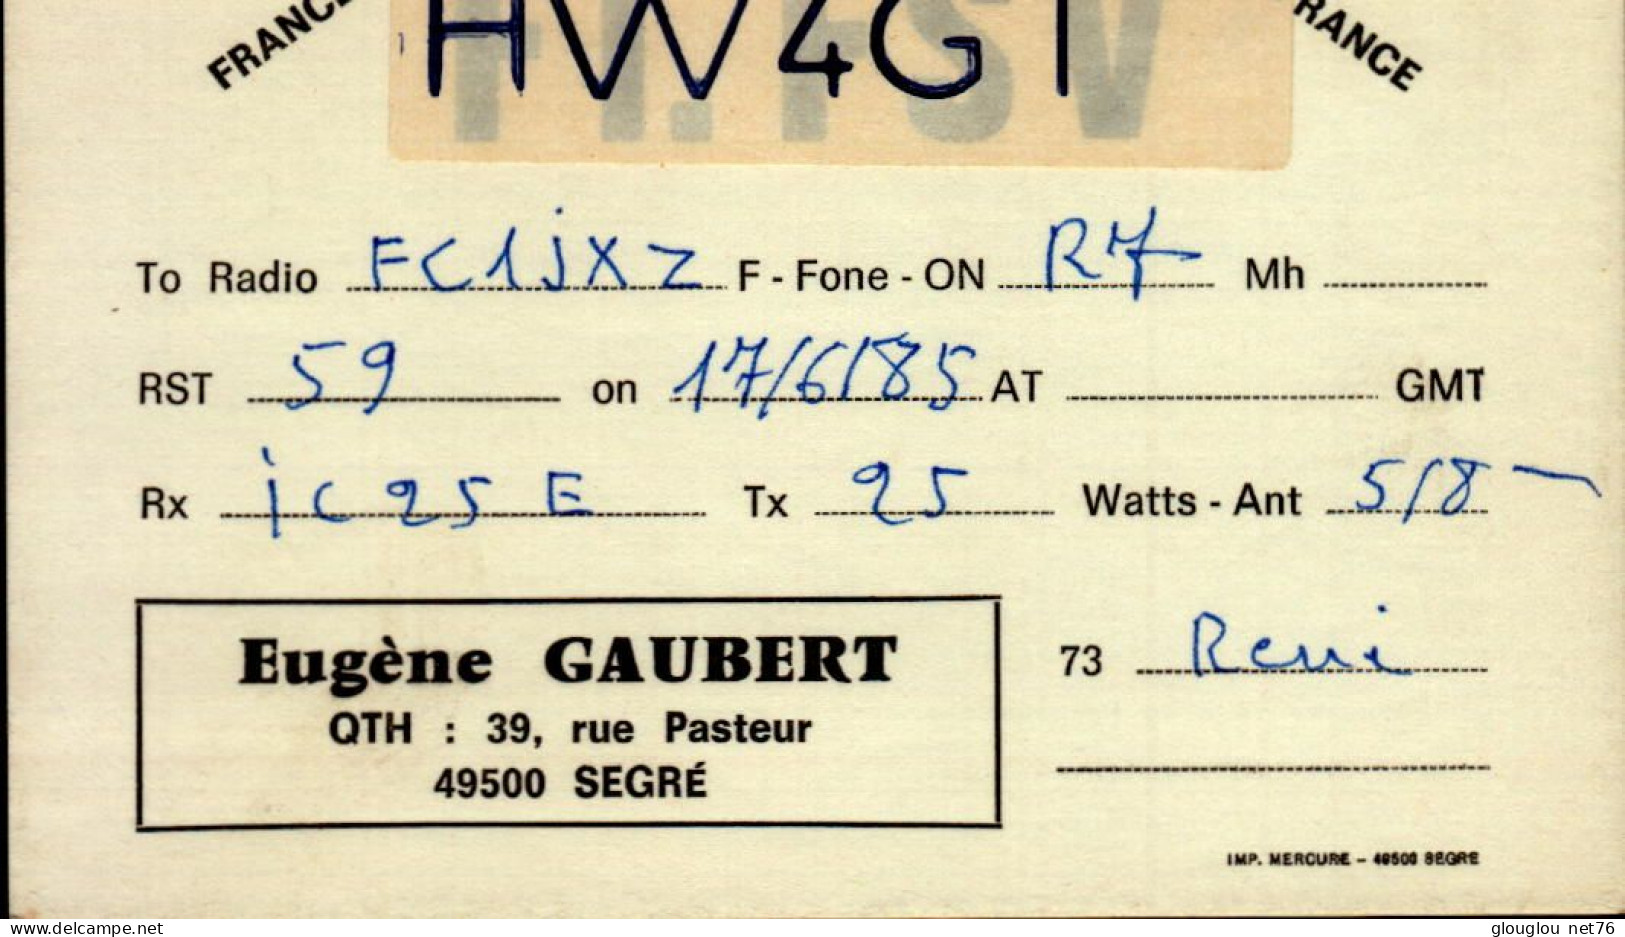 FRANCE HW4GT FRANCE
To Radio FC1JXZ F - Fone - ON R7 Mh
RST 59 on 17/6/85 AT GMT
Rx iC 25 E Tx 25 Watts - Ant 5/8
Eugène GAUBERT
QTH : 39, rue Pasteur
49500 SEGRÉ
73
IMP. MERCURE - 49500 SEGRE
delcampe.net
glouglou net76